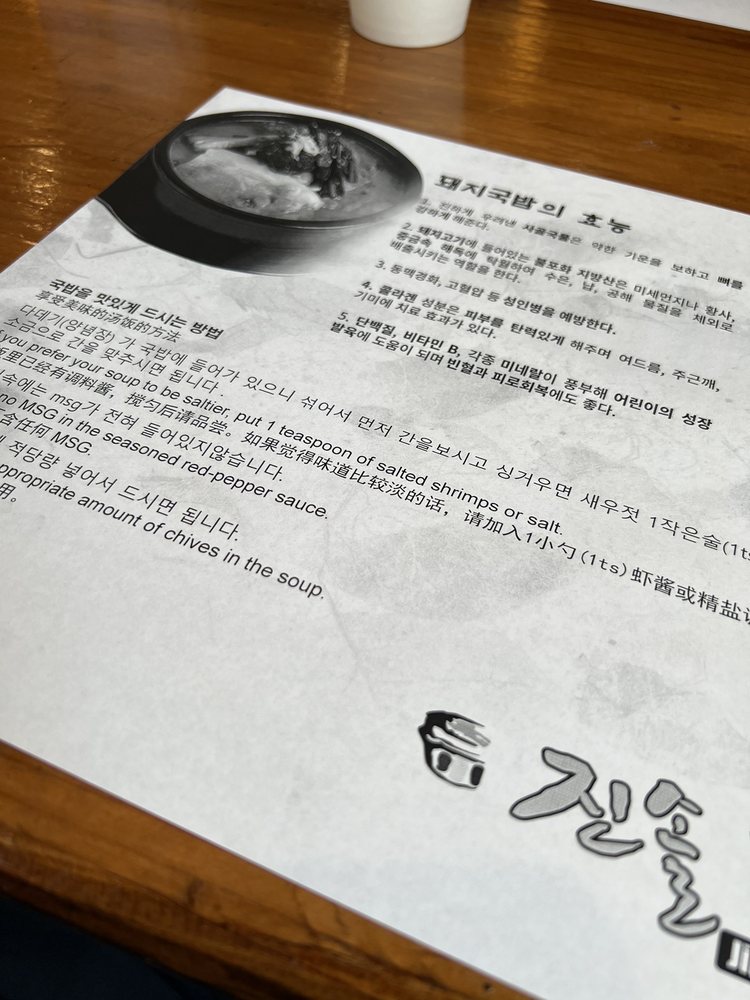 돼지국밥의 효능
1. 진하게 우려낸 사골국물은 약한 기운을 보하고 뼈를
강하게 해준다.
2. 돼지고기에 들어있는 불포화 지방산은 미세먼지나 황사,
중금속 해독에 탁월하여 수은, 납, 공해 물질을 체외로
배출시키는 역할을 한다.
3. 동맥경화, 고혈압 등 성인병을 예방한다.
4. 콜라겐 성분은 피부를 탄력있게 해주며 여드름, 주근깨,
기미에 치료 효과가 있다.
5. 단백질, 비타민 B, 각종 미네랄이 풍부해 어린이의 성장
발육에 도움이 되며 빈혈과 피로회복에도 좋다.
국밥을 맛있게 드시는 방법
享受美味的汤饭的方法
다대기(양념장) 가 국밥에 들어가 있으니 섞어서 먼저 간을보시고 싱거우면 새우젓 1작은술(1ts
소금으로 간을 맞추시면 됩니다.
you prefer your soup to be saltier, put 1 teaspoon of salted shrimps or salt.
里已经有调料酱, 搅匀后请品尝。如果觉得味道比较淡的话, 请加入1小勺(1ts)虾酱或精盐
속에는 msg가 전혀 들어있지않습니다.
no MSG in the seasoned red-pepper sauce.
含任何 MSG.
적당량 넣어서 드시면 됩니다.
ppropriate amount of chives in the soup.
用。
진